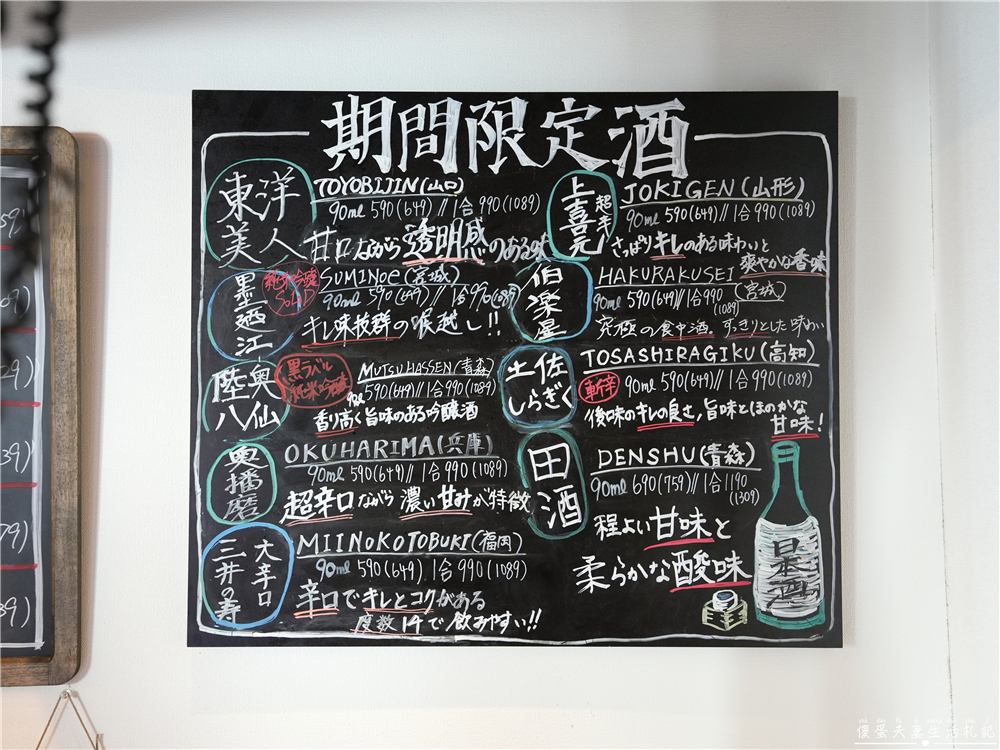 期間限定酒
東洋美人
TOYOBIJIN(山口)
90ml 590(649)// 1合 990(1089)
甘口ながら透明感のある味
墨廼江
純米吟醸
SUMINOE(宮城)
90ml 590(649)// 1合 990(1089)
キレ味抜群の喉越し!!
陸奥八仙
黒ラベル
純米吟醸
MUTSUHASSEN(青森)
90ml 590(649)// 1合 990(1089)
香り高く旨味のある吟醸酒
奥播磨
OKUHARIMA(兵庫)
90ml 590(649)// 1合 990(1089)
超辛口ながら濃い甘みが特徴
三井の寿
大辛口
MIINOKOTOBUKI(福岡)
90ml 590(649) 1合 990(1089)
辛口でキレとコクがある
度数14で飲みやすい!!
上喜元
超辛
JOKIGEN(山形)
90ml 590(649)// 1合 990(1089)
さっぱりキレのある味わいと
爽やかな香味
伯楽星
HAKURAKUSEI
(宮城)
90ml 590(649)// 1合 990
(1089)
究極の食中酒 すっきりとした味わい
土佐しらぎく
TOSASHIRAGIKU(高知)
斬辛
90ml 590(649)// 1合 990(1089)
後味のキレの良さ、旨味とほのかな
甘味!
田酒
DENSHU(青森)
90ml 690(759)// 1合 1190
(1309)
程よい甘味と
柔らかな酸味
日本酒
59)
09)
29)
39)
79)
39)
傻蛋夫妻生活札記